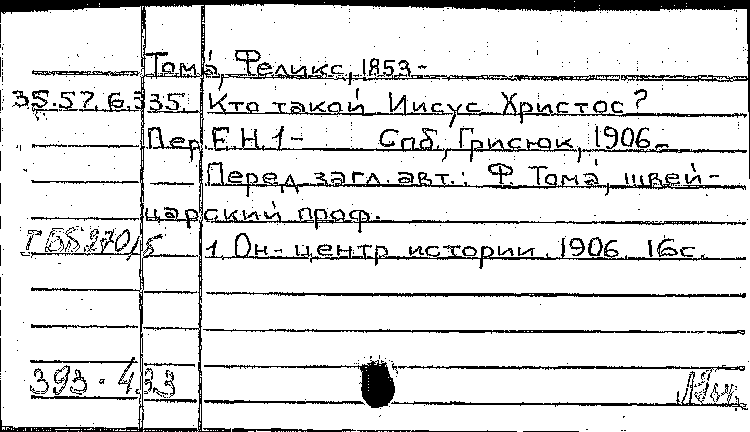 Тома́, Феликс, 1853-
35.57.6.335. Кто такой Иисус Христос?
Пер. Е.Н. 1- Спб., Грисюк, 1906-
Перед загл. авт.: Ф. Тома́, швей-
царский проф.
I ВБ 270/5 1. Он-центр истории. 1906. 16с.
393 · 433